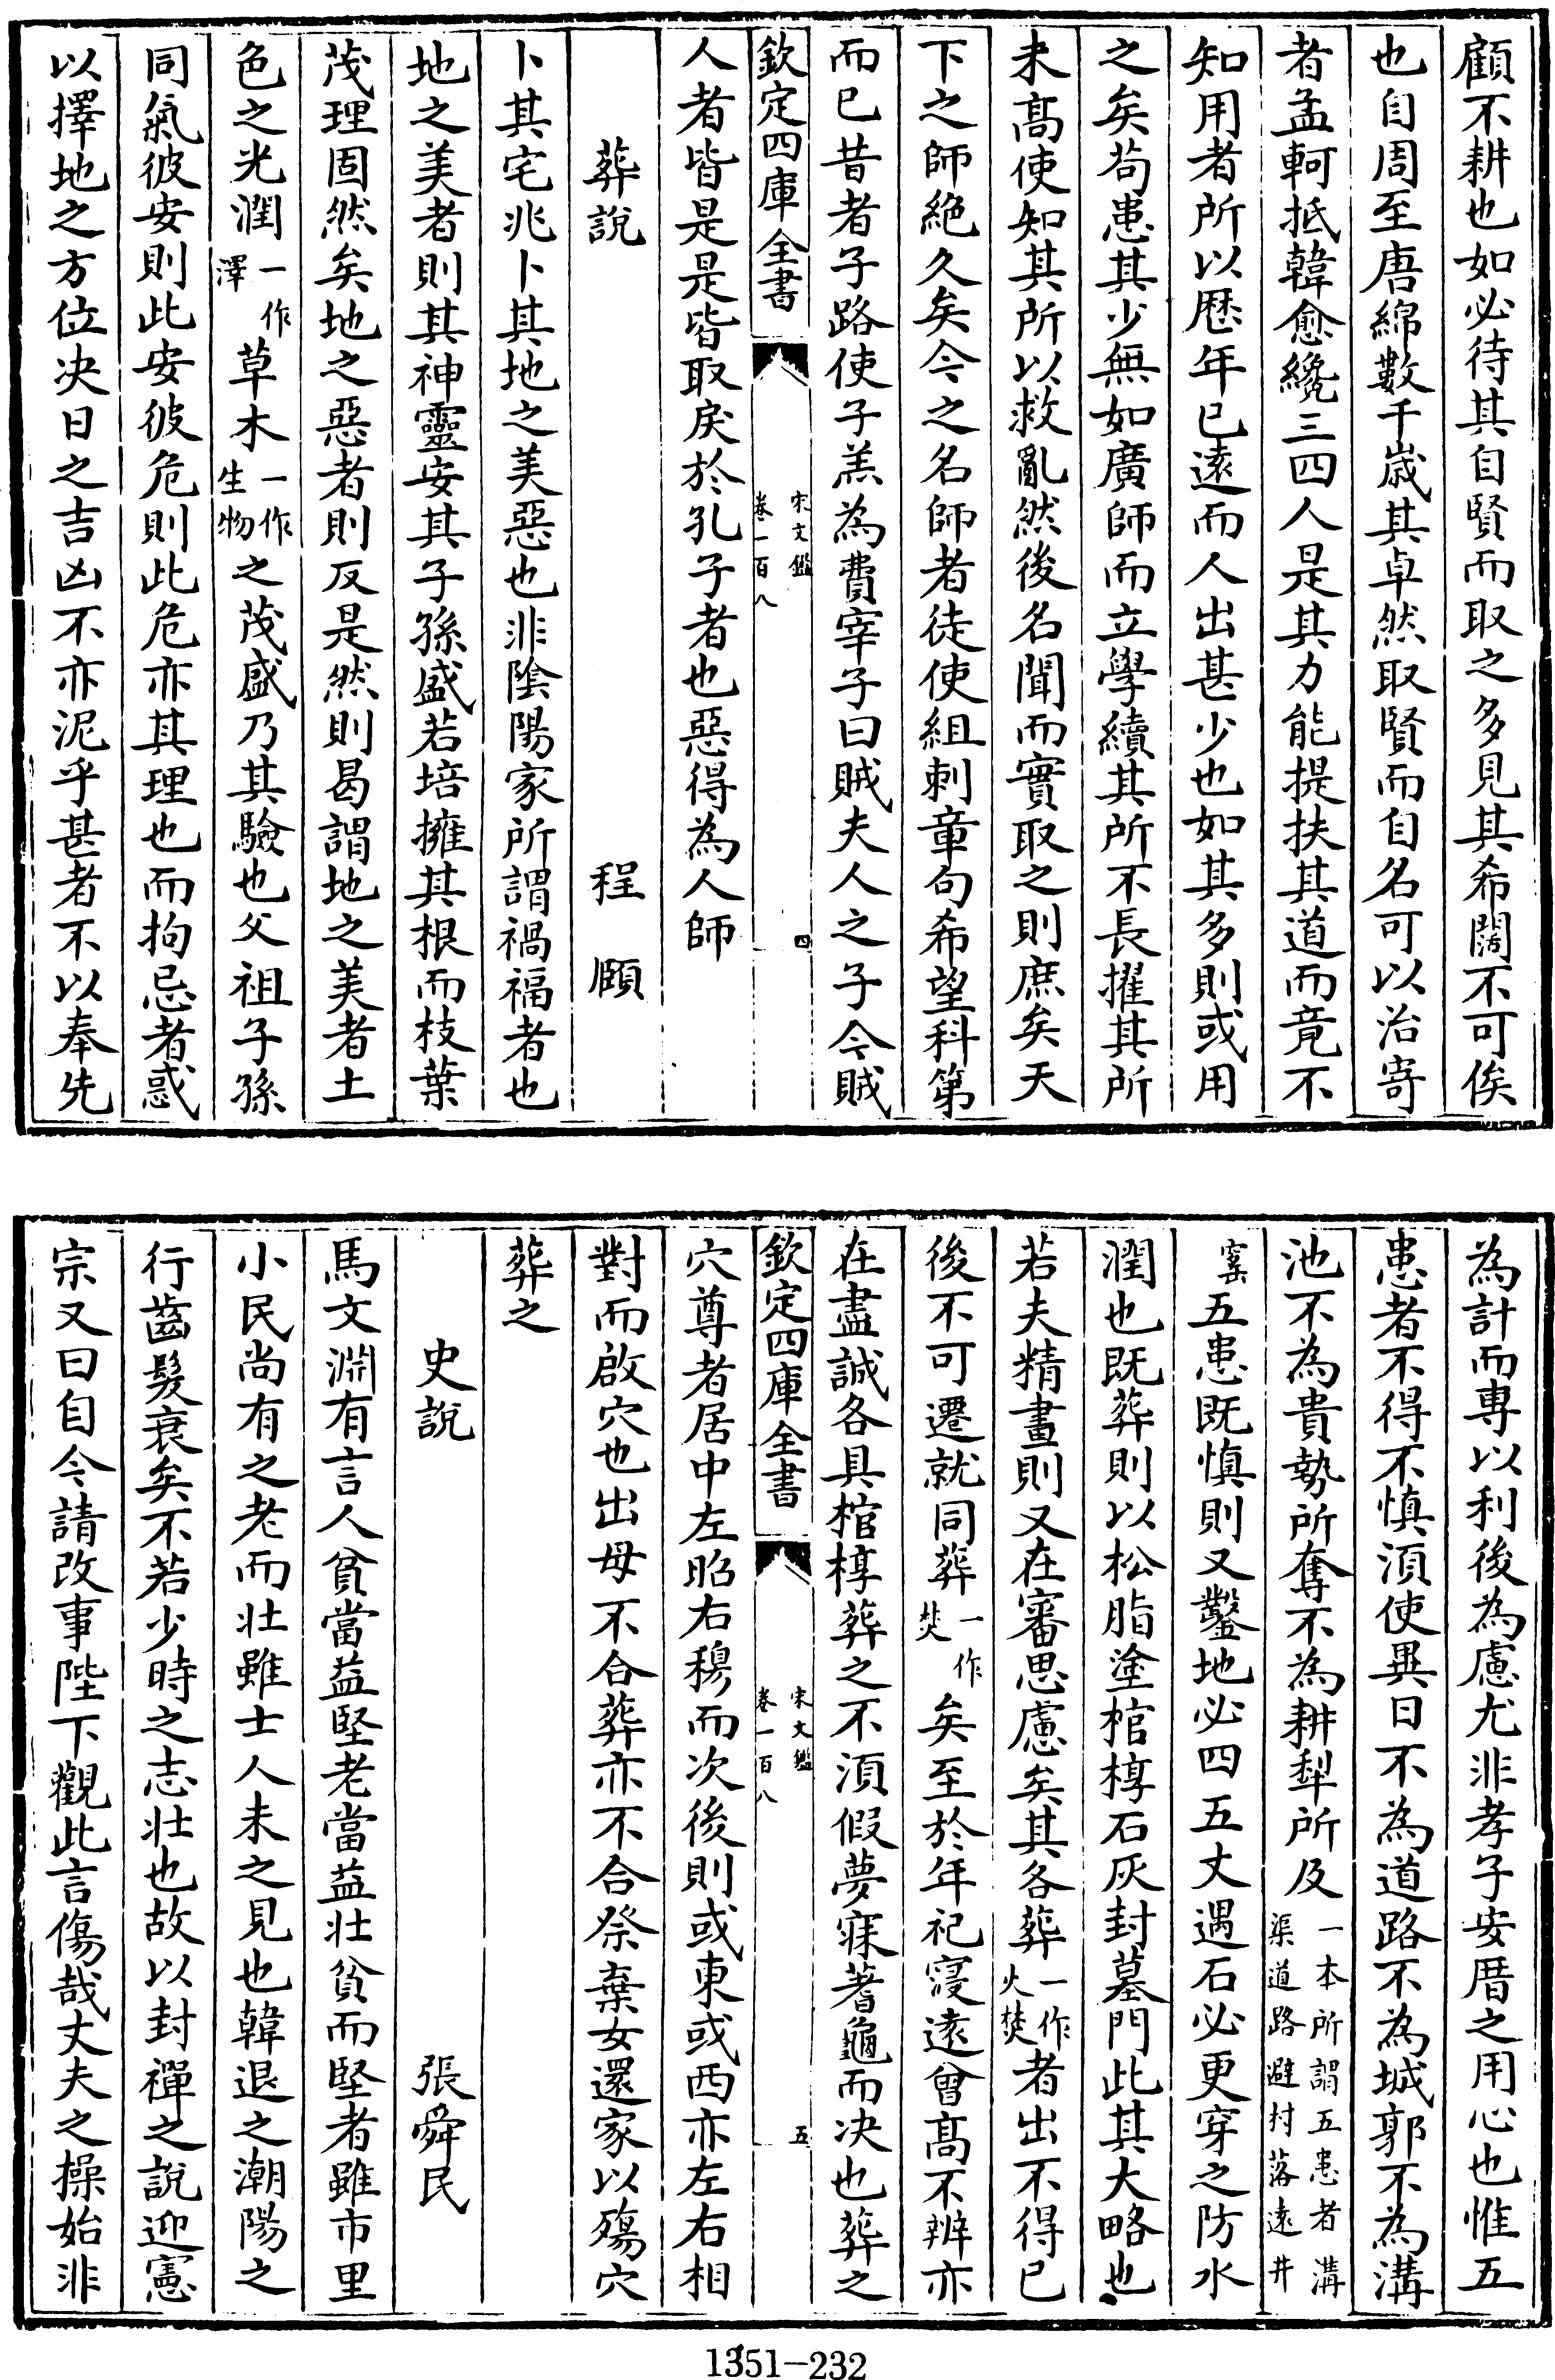 顧不耕也如必待其自賢而取之多見其希闊不可俟
也自周至唐綿數千歲其卓然取賢而自名可以治寄
者孟軻抵韓愈纔三四人是其力能提扶其道而竟不
知用者所以歷年已遠而人出甚少也如其多則或用
之矣苟患其少無如廣師而立學續其所不長擢其所
未髙使知其所以救亂然後名聞而實取之則庶矣天
下之師絶久矣今之名師者徒使組刺章句希望科第
而已昔者子路使子羔為費宰子曰賊夫人之子今賊
欽定四庫全書
宋文鑑
卷一百八
四
人者皆是是皆取戾於孔子者也惡得為人師
葬說
程頤
卜其宅兆卜其地之美惡也非陰陽家所謂禍福者也
地之美者則其神靈安其子孫盛若培擁其根而枝葉
茂理固然矣地之惡者則反是然則曷謂地之美者土
色之光潤一作澤草木一作生物之茂盛乃其驗也父祖子孫
同氣彼安則此安彼危則此危亦其理也而拘忌者惑
以擇地之方位決日之吉凶不亦泥乎甚者不以奉先
為計而專以利後為慮尤非孝子安厝之用心也惟五
患者不得不慎須使異日不為道路不為城郭不為溝
池不為貴勢所奪不為耕犁所及一本所謂五患者溝渠道路避村落遠井
窰五患既慎則又鑿地必四五丈遇石必更穿之防水
潤也既葬則以松脂塗棺椁石灰封墓門此其大略也
若夫精畫則又在審思慮矣其各葬一作火焚者出不得已
後不可遷就同葬一作焚矣至於年祀寖遠曾髙不辨亦
在盡誠各具棺椁葬之不須假夢寐蓍龜而決也葬之
欽定四庫全書
宋文鑑
卷一百八
五
穴尊者居中左昭右穆而次後則或東或西亦左右相
對而啟穴也出母不合葬亦不合祭棄女還家以殤穴
葬之
史說
張舜民
馬文淵有言人貧當益堅老當益壯貧而堅者雖市里
小民尚有之老而壯雖士人未之見也韓退之潮陽之
行齒髮衰矣不若少時之志壯也故以封禪之說迎憲
宗又曰自今請改事陛下觀此言傷哉丈夫之操始非
1351-232